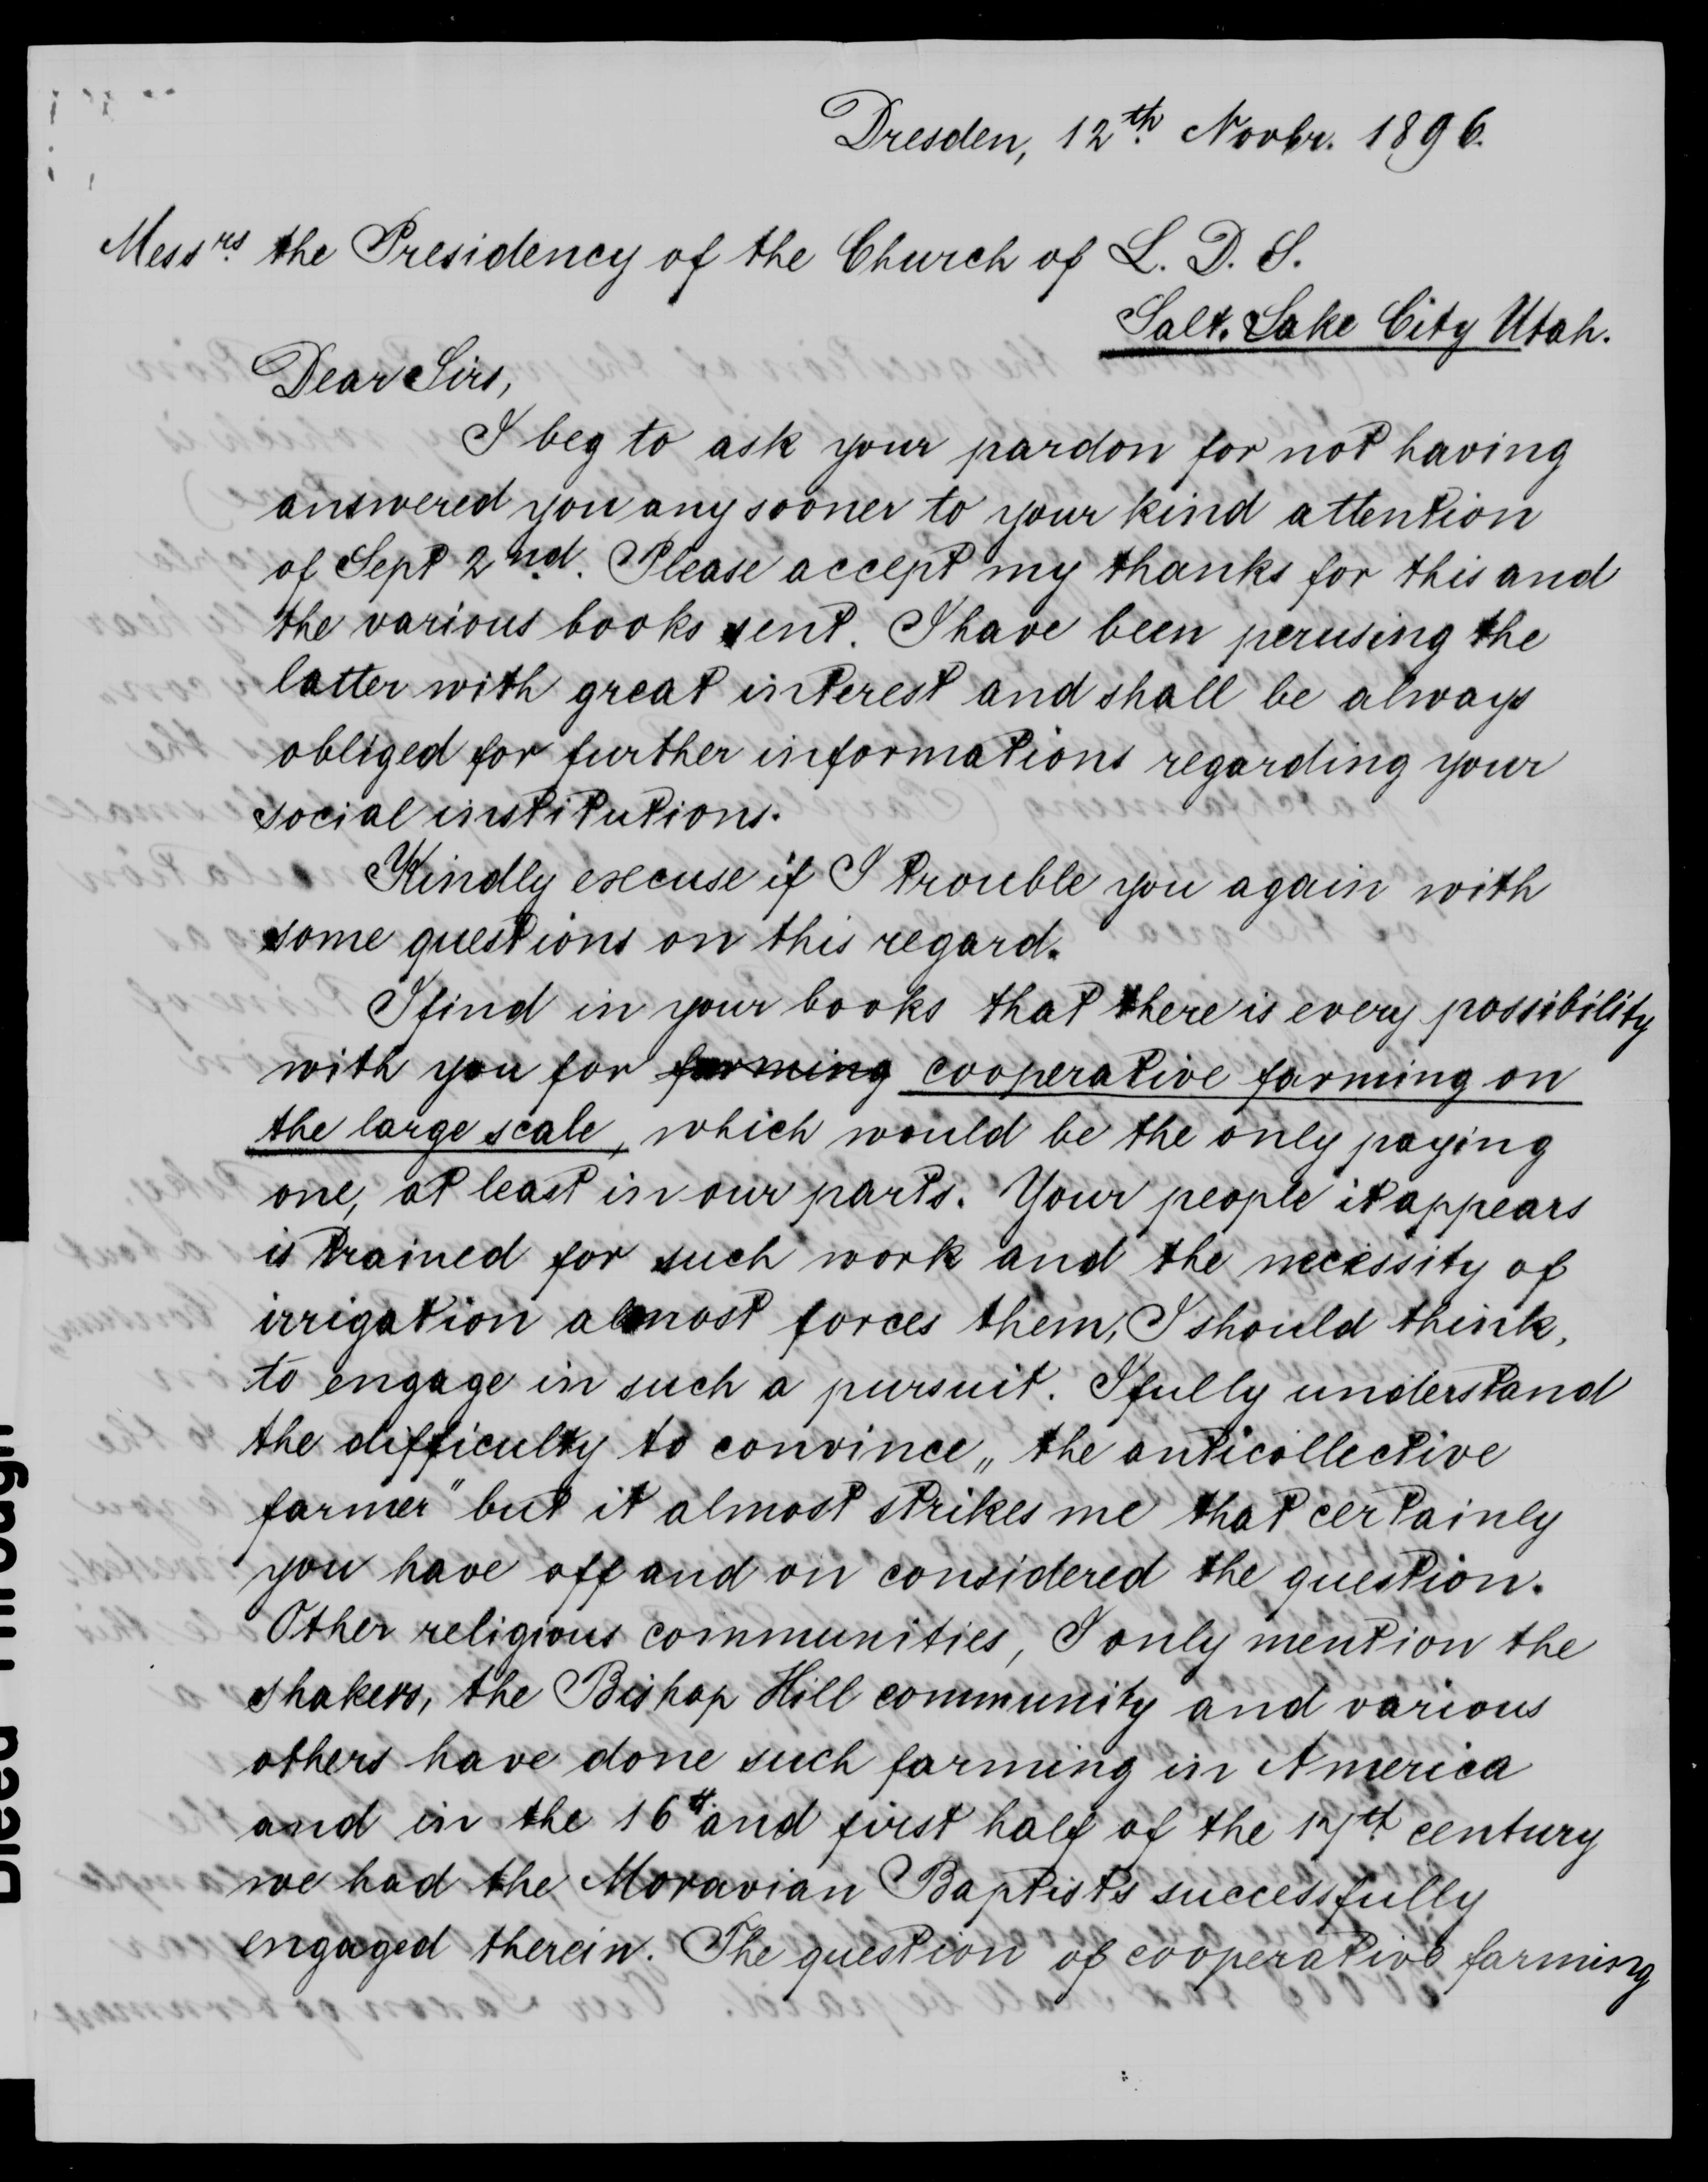 Dresden, 12th. Novbr. 1896.
Messrs. the Presidency of the Church of L. D. S.
Salt. Lake City Utah.
Dear Sirs,
I beg to ask your pardon for not having
answered you any sooner to your kind attention
of Sept 2nd. Please accept my thanks for this and
the various books sent. I have been perusing the
latter with great interest and shall be always
obliged for further informations regarding your
social institutions.
Kindly excuse if I trouble you again with
some questions on this regard.
I find in your books that there is every possibility
with you for farming cooperative farming on
the large scale, which would be the only paying
one, at least in our parts. Your people it appears
is trained for such work and the necessity of
irrigation almost forces them, I should think,
to engage in such a pursuit. I fully understand
the difficulty to convince „the anticollective
farmer" but it almost strikes me that certainly
you have off and on considered the question.
Other religious communities, I only mention the
shakers, the Bishop Hill community and various
others have done such farming in America
and in the 16th and first half of the 17th century
we had the Moravian Baptists successfully
engaged therein. The question of cooperative farming
Bleed Through